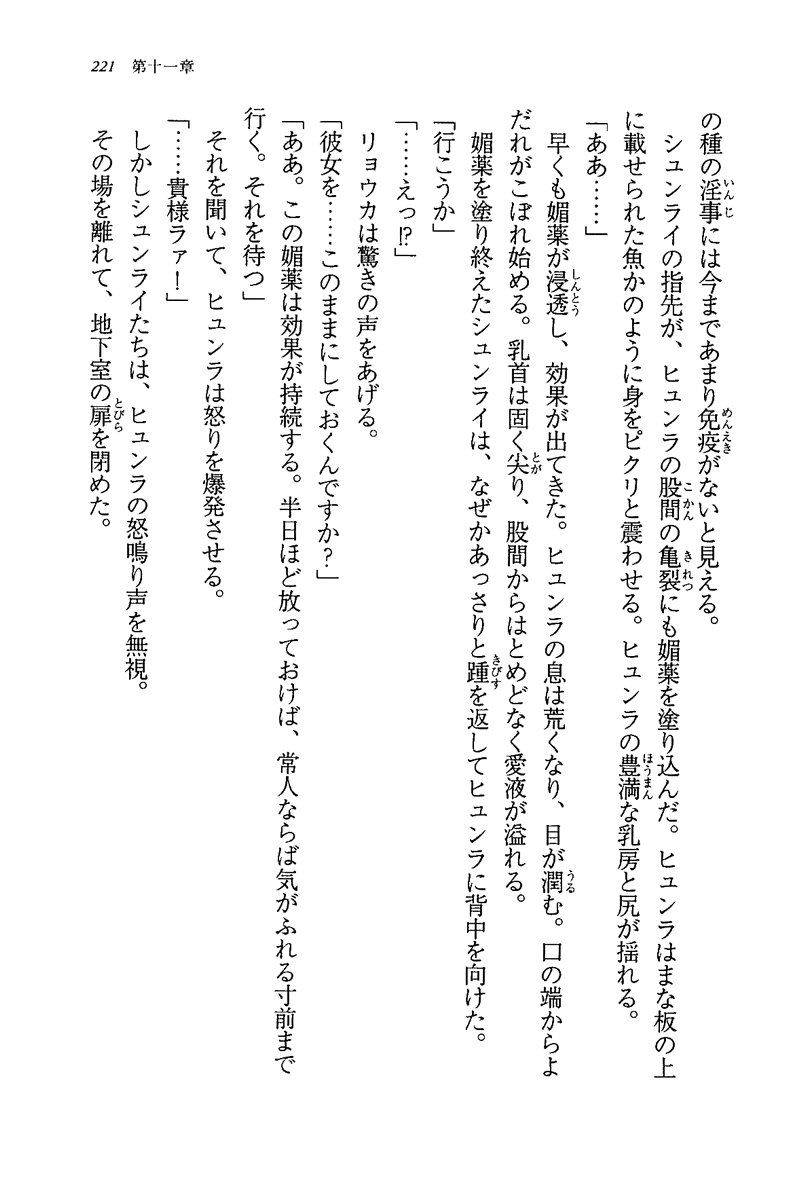 221 第十一章
の種の淫事には今まであまり免疫がないと見える。
シュンライの指先が、ヒュンラの股間の亀裂にも媚薬を塗り込んだ。ヒュンラはまな板の上
に載せられた魚かのように身をピクリと震わせる。ヒュンラの豊満な乳房と尻が揺れる。
「ああ……」
早くも媚薬が浸透し、効果が出てきた。ヒュンラの息は荒くなり、目が潤む。口の端からよ
だれがこぼれ始める。乳首は固く尖り、股間からはとめどなく愛液が溢れる。
媚薬を塗り終えたシュンライは、なぜかあっさりと踵を返してヒュンラに背中を向けた。
「行こうか」
「……えっ!?」
リョウカは驚きの声をあげる。
「彼女を……このままにしておくんですか?」
「ああ。この媚薬は効果が持続する。半日ほど放っておけば、常人ならば気がふれる寸前まで
行く。それを待つ」
それを聞いて、ヒュンラは怒りを爆発させる。
「……貴様ラァ!」
しかしシュンライたちは、ヒュンラの怒鳴り声を無視。
その場を離れて、地下室の扉を閉めた。